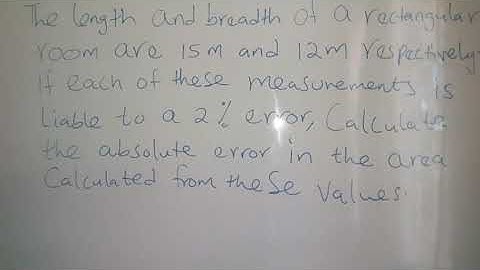 The length and breadth of a rectangular
room are 15m and 12m respectively.
If each of these measurements is
liable to a 2% error, Calculate
the absolute error in the area
Calculated from these values.